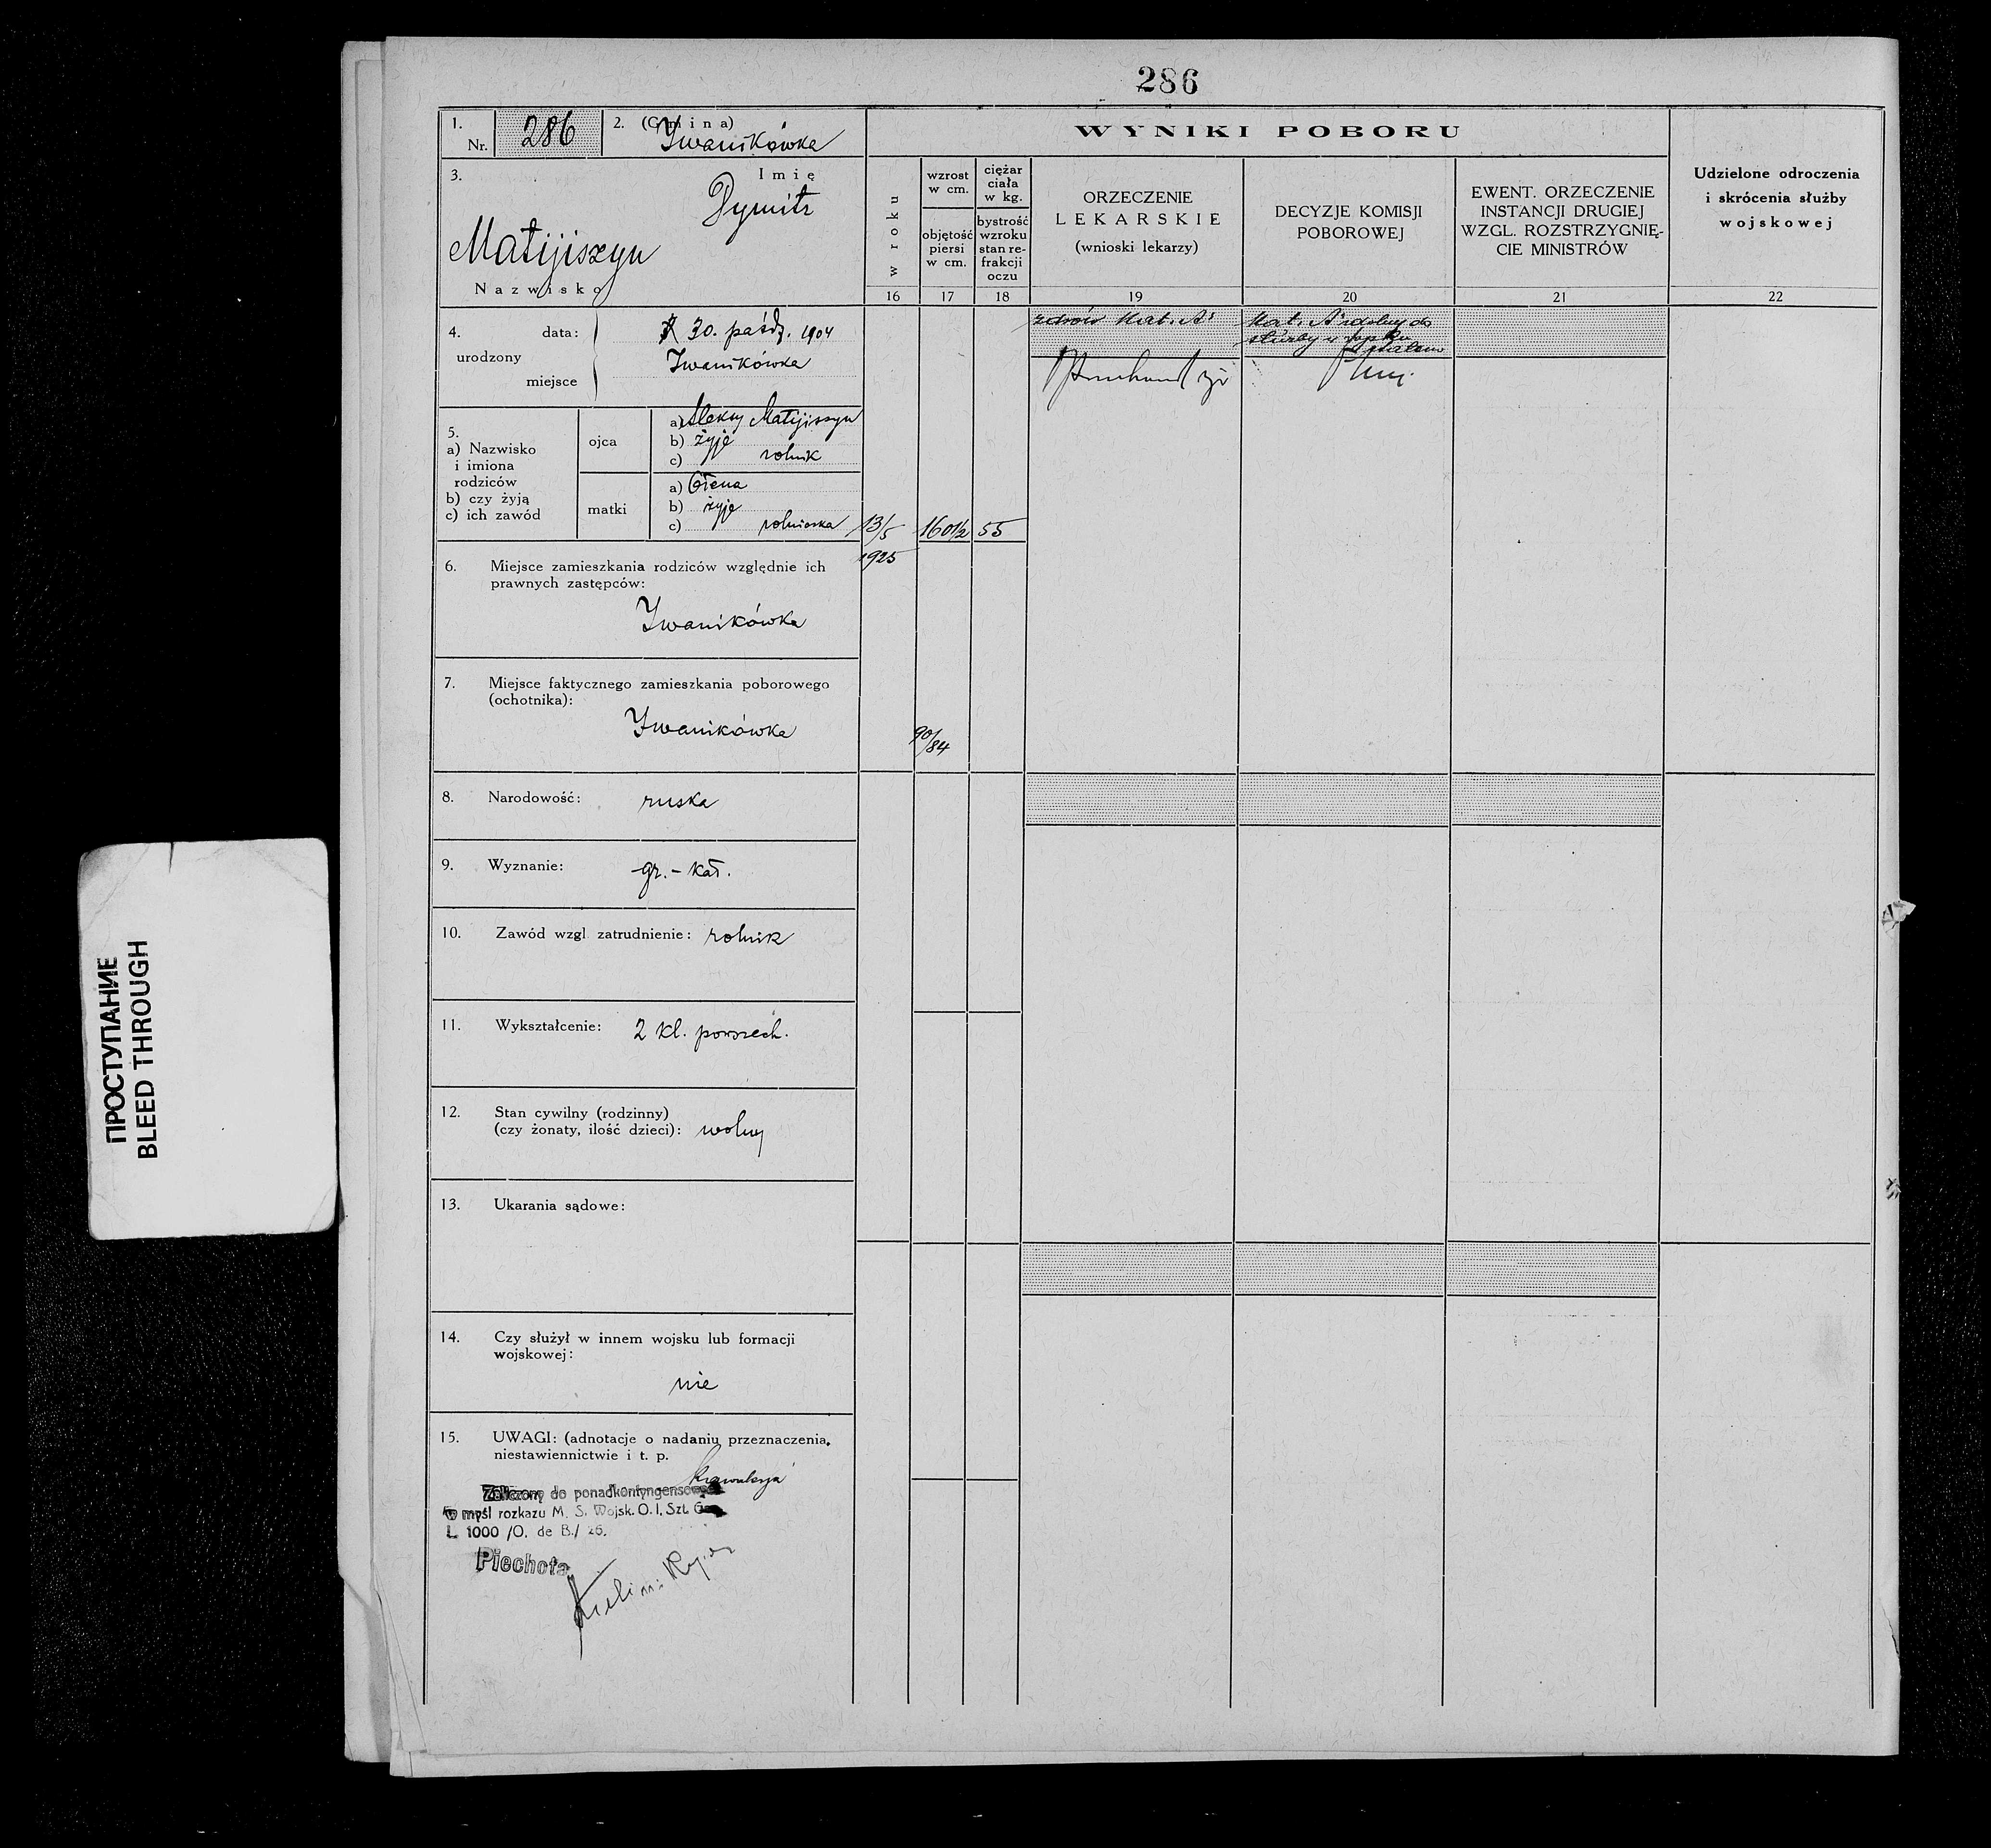 286
1.
Nr. 286
2. (Gmina)
Iwanikówka
3.
Imię
Dymitr
Matijiszyn
Nazwisko
4.
urodzony
data: 30. paźdz. 1904
miejsce Iwanikówka
5.
a) Nazwisko
i imiona
rodziców
b) czy żyją
c) ich zawód
ojca
a) Aleksy Matijiszyn
b) żyje
c) rolnik
matki
a) Ołena
b) żyje
c) rolniczka
6. Miejsce zamieszkania rodziców względnie ich
prawnych zastępców:
Iwanikówka
7. Miejsce faktycznego zamieszkania poborowego
(ochotnika):
Iwanikówka
8. Narodowość: ruska
9. Wyznanie: gr.-kat.
10. Zawód wzgl. zatrudnienie: rolnik
11. Wykształcenie: 2 kl. powszech.
12. Stan cywilny (rodzinny)
(czy żonaty, ilość dzieci): wolny
13. Ukarania sądowe:
14. Czy służył w innem wojsku lub formacji
wojskowej:
nie
15. UWAGI: (adnotacje o nadaniu przeznaczenia,
niestawiennictwie i t. p.
Kawalerja
Zaliczony do ponadkontyngensowych
w myśl rozkazu M. S. Wojsk. O. I. Szt. Gen.
L. 1000 /O. de B./ 26.
Piechota
WYNIKI POBORU
w roku
16
13/5
1925
wzrost
w cm.
objętość
piersi
w cm.
17
160 1/2
90/84
ciężar
ciała
w kg.
bystrość
wzroku
stan re-
frakcji
oczu
18
55
ORZECZENIE
LEKARSKIE
(wnioski lekarzy)
19
zdrów Kat. A
DECYZJE KOMISJI
POBOROWEJ
20
Kat. A zdolny do
służby w
EWENT. ORZECZENIE
INSTANCJI DRUGIEJ
WZGL. ROZSTRZYGNIĘ-
CIE MINISTRÓW
21
Udzielone odroczenia
i skrócenia służby
wojskowej
22
ПРОСТУПАНИЕ
BLEED THROUGH